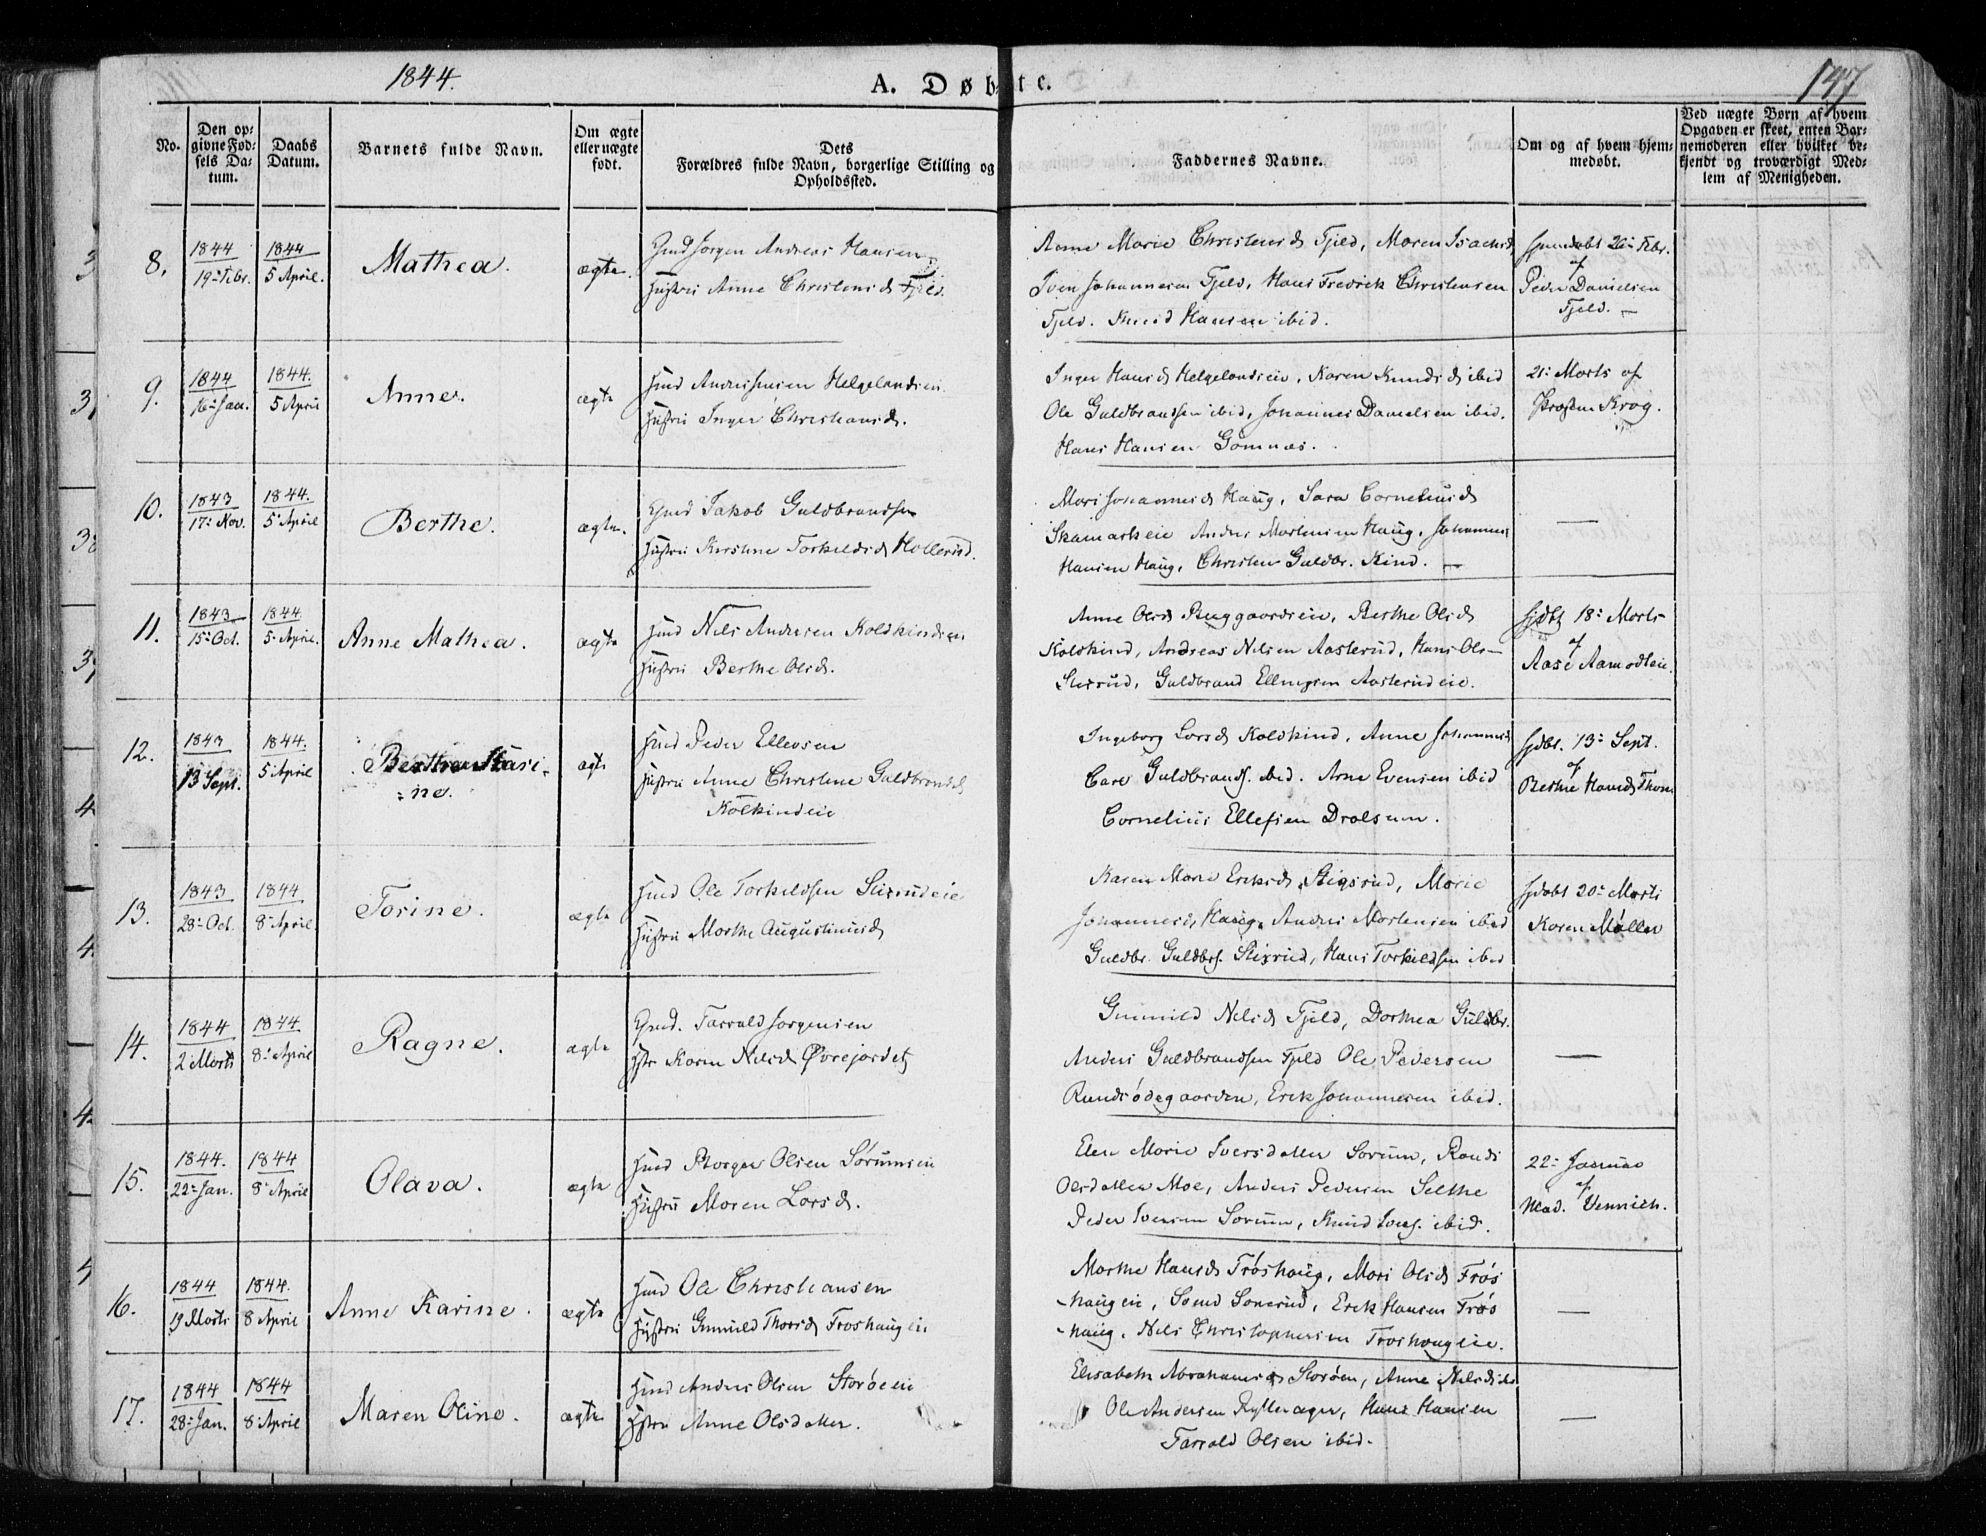 1844.
A. Døbte.
147
No.
Den op-
givne Fød-
sels Da-
tum.
Daabs
Datum.
Barnets fulde Navn.
Om ægte
eller uægte
født.
Dets
Forældres fulde Navn, borgerlige Stilling og
Opholdssted.
Faddernes Navne.
Om og af hvem hjem-
medøbt.
Ved uægte Børn af hvem
Opgaven er skeet, enten Bar-
nemoderen eller hvilket be-
kjendt og troværdigt Med-
lem af Menigheden.
8.
1844
19 Febr.
1844
5 April.
Mathea.
ægte.
Jørgen Andreas Hansen
Hustru Anne Christensd Fjeld.
Anne Marie Christensd Fjeld, Maren Isachsd
Iven Johannesen Fjeld, Hans Fredrik Christensen
Fjeld. Knud Hansen ibid.
20 Febr.
af
Peder Danielsen
Fjeld.
9.
1844
16 Jan.
1844.
5 April
Anne.
ægte
Helgelandseie
Hustru Inger Christiansd.
Inger Hansd Helgelandseie, Karen Knudsd ibid
Ole Guldbrandsen ibid, Johannes Danielsen ibid.
Hans Hansen Gomnæs.
21 Marts af
Krog.
10.
1843
17 Nov.
1844.
5 April
Berthe.
ægte.
Jakob Guldbrandsen
Hustru Kirstine Torkildsd Hollerud.
Mari Johannesd Haug, Sara Corneliusd
Anders Mortensen Haug, Johannes
Hansen Haug, Christen Guldbr. Kind.
—
11.
1843
15 Oct.
1844
5 April.
Anne Mathea.
ægte
Nils Andersen Koldkindeie
Hustru Berthe Olsd.
Anne Olsd Byggaardseie, Berthe Olsd
Koldkind, Andreas Nilsen Aasterud, Hans Ols-
Stixrud, Guldbrand Ellingsen Aasterudeie.
Hjdbt 18 Marts
af
Aase Aamodteie
12.
1843
13 Sept.
1844.
5 April
Berthe Kari-
ne.
ægte
Peder Ellevsen
Hustru Anne Christine Guldbrandsd
Kolkindeie
Ingeborg Larsd Koldkind, Anne Johannesd
Carl Guldbrands. ibid. Arne Evensen ibid
Cornelius Ellefsen Drolsum.
Hjdbt. 13 Sept.
af
Berthe Hansd
13.
1843
28 Oct.
1844
8 April
Torine.
ægte
Ole Torkildsen Stixrudeie
Hustru Marthe Augustinusd
Karen Marie Eriksd Stigsrud, Marie
Johannesd, Haug, Anders Mortensen ibid
Guldbr. Guldbrs. Stixrud, Hans Torkildsen ibid
Hjdbt 20 Marts
Karen Møller
14.
1844
2 Marts
1844
8 April
Ragne.
ægte
Tarrald Jørgensen
Hstr Karen Nilsd Øvrejordet
Gunnild Nilsd Fjeld, Dorthea Guldbr.
Anders Guldbrandsen Fjeld Ole Pedersen
Rundsødegaarden, Erik Johannesen ibid.
—
15.
1844.
22 Jan.
1844
8 April
Olava.
ægte
Olsen Sørumseie
Hustru Maren Larsd.
Elen Marie Iversdatter Sørum, Randi
Olsdatter Moe, Anders Pedersen Selthe
Peder Iversen Sørum, Knud Ivers. ibid.
22 Januar
af
Mad. Vennich.
16.
1844
19 Marts
1844.
8 April
Anne Karine.
ægte
Ole Christiansen
Hustru Gunnild Thorsd Frøshaugeie
Marthe Hansd Frøshaug, Mari Olsd Frøs
-haugeie, Svend Sonerud, Erik Hansen Frøs
-haug. Nils Christophersen Frøshaugeie.
—
17.
1844
28 Jan.
1844
8 April
Maren Oline.
ægte
Anders Olsen Storøeie
Hstru Anne Olsdatter.
Elisabeth Abrahamsd Storøen, Anne Nilsd
Ole Andersen Rytterager, Hans Hansen
Tarrald Olsen ibid.
—